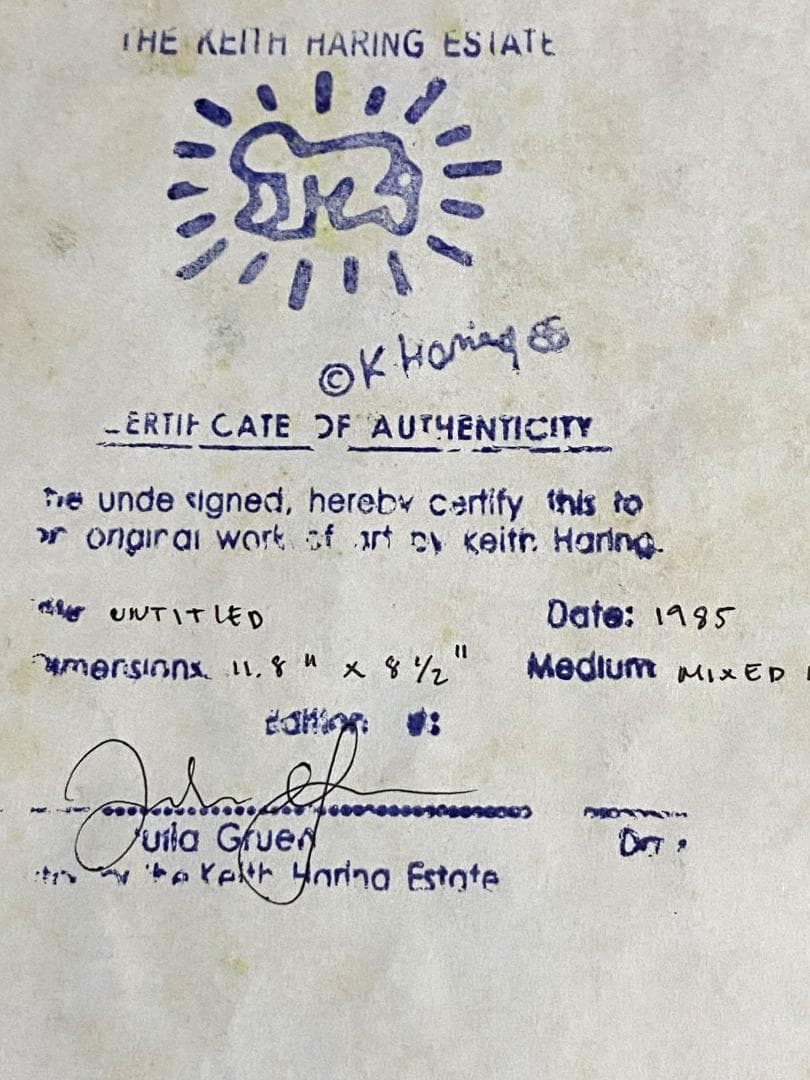 THE KEITH HARING ESTATE
© K. Haring 86
ERTIFICATE OF AUTHENTICITY
unde signed, hereby certify this to
original work of art by Keith Haring.
UNTITLED Date: 1985
imensions. 11.8" x 8 1/2" Medium MIXED
Edition #:
Julia Gruen
the Keith Haring Estate